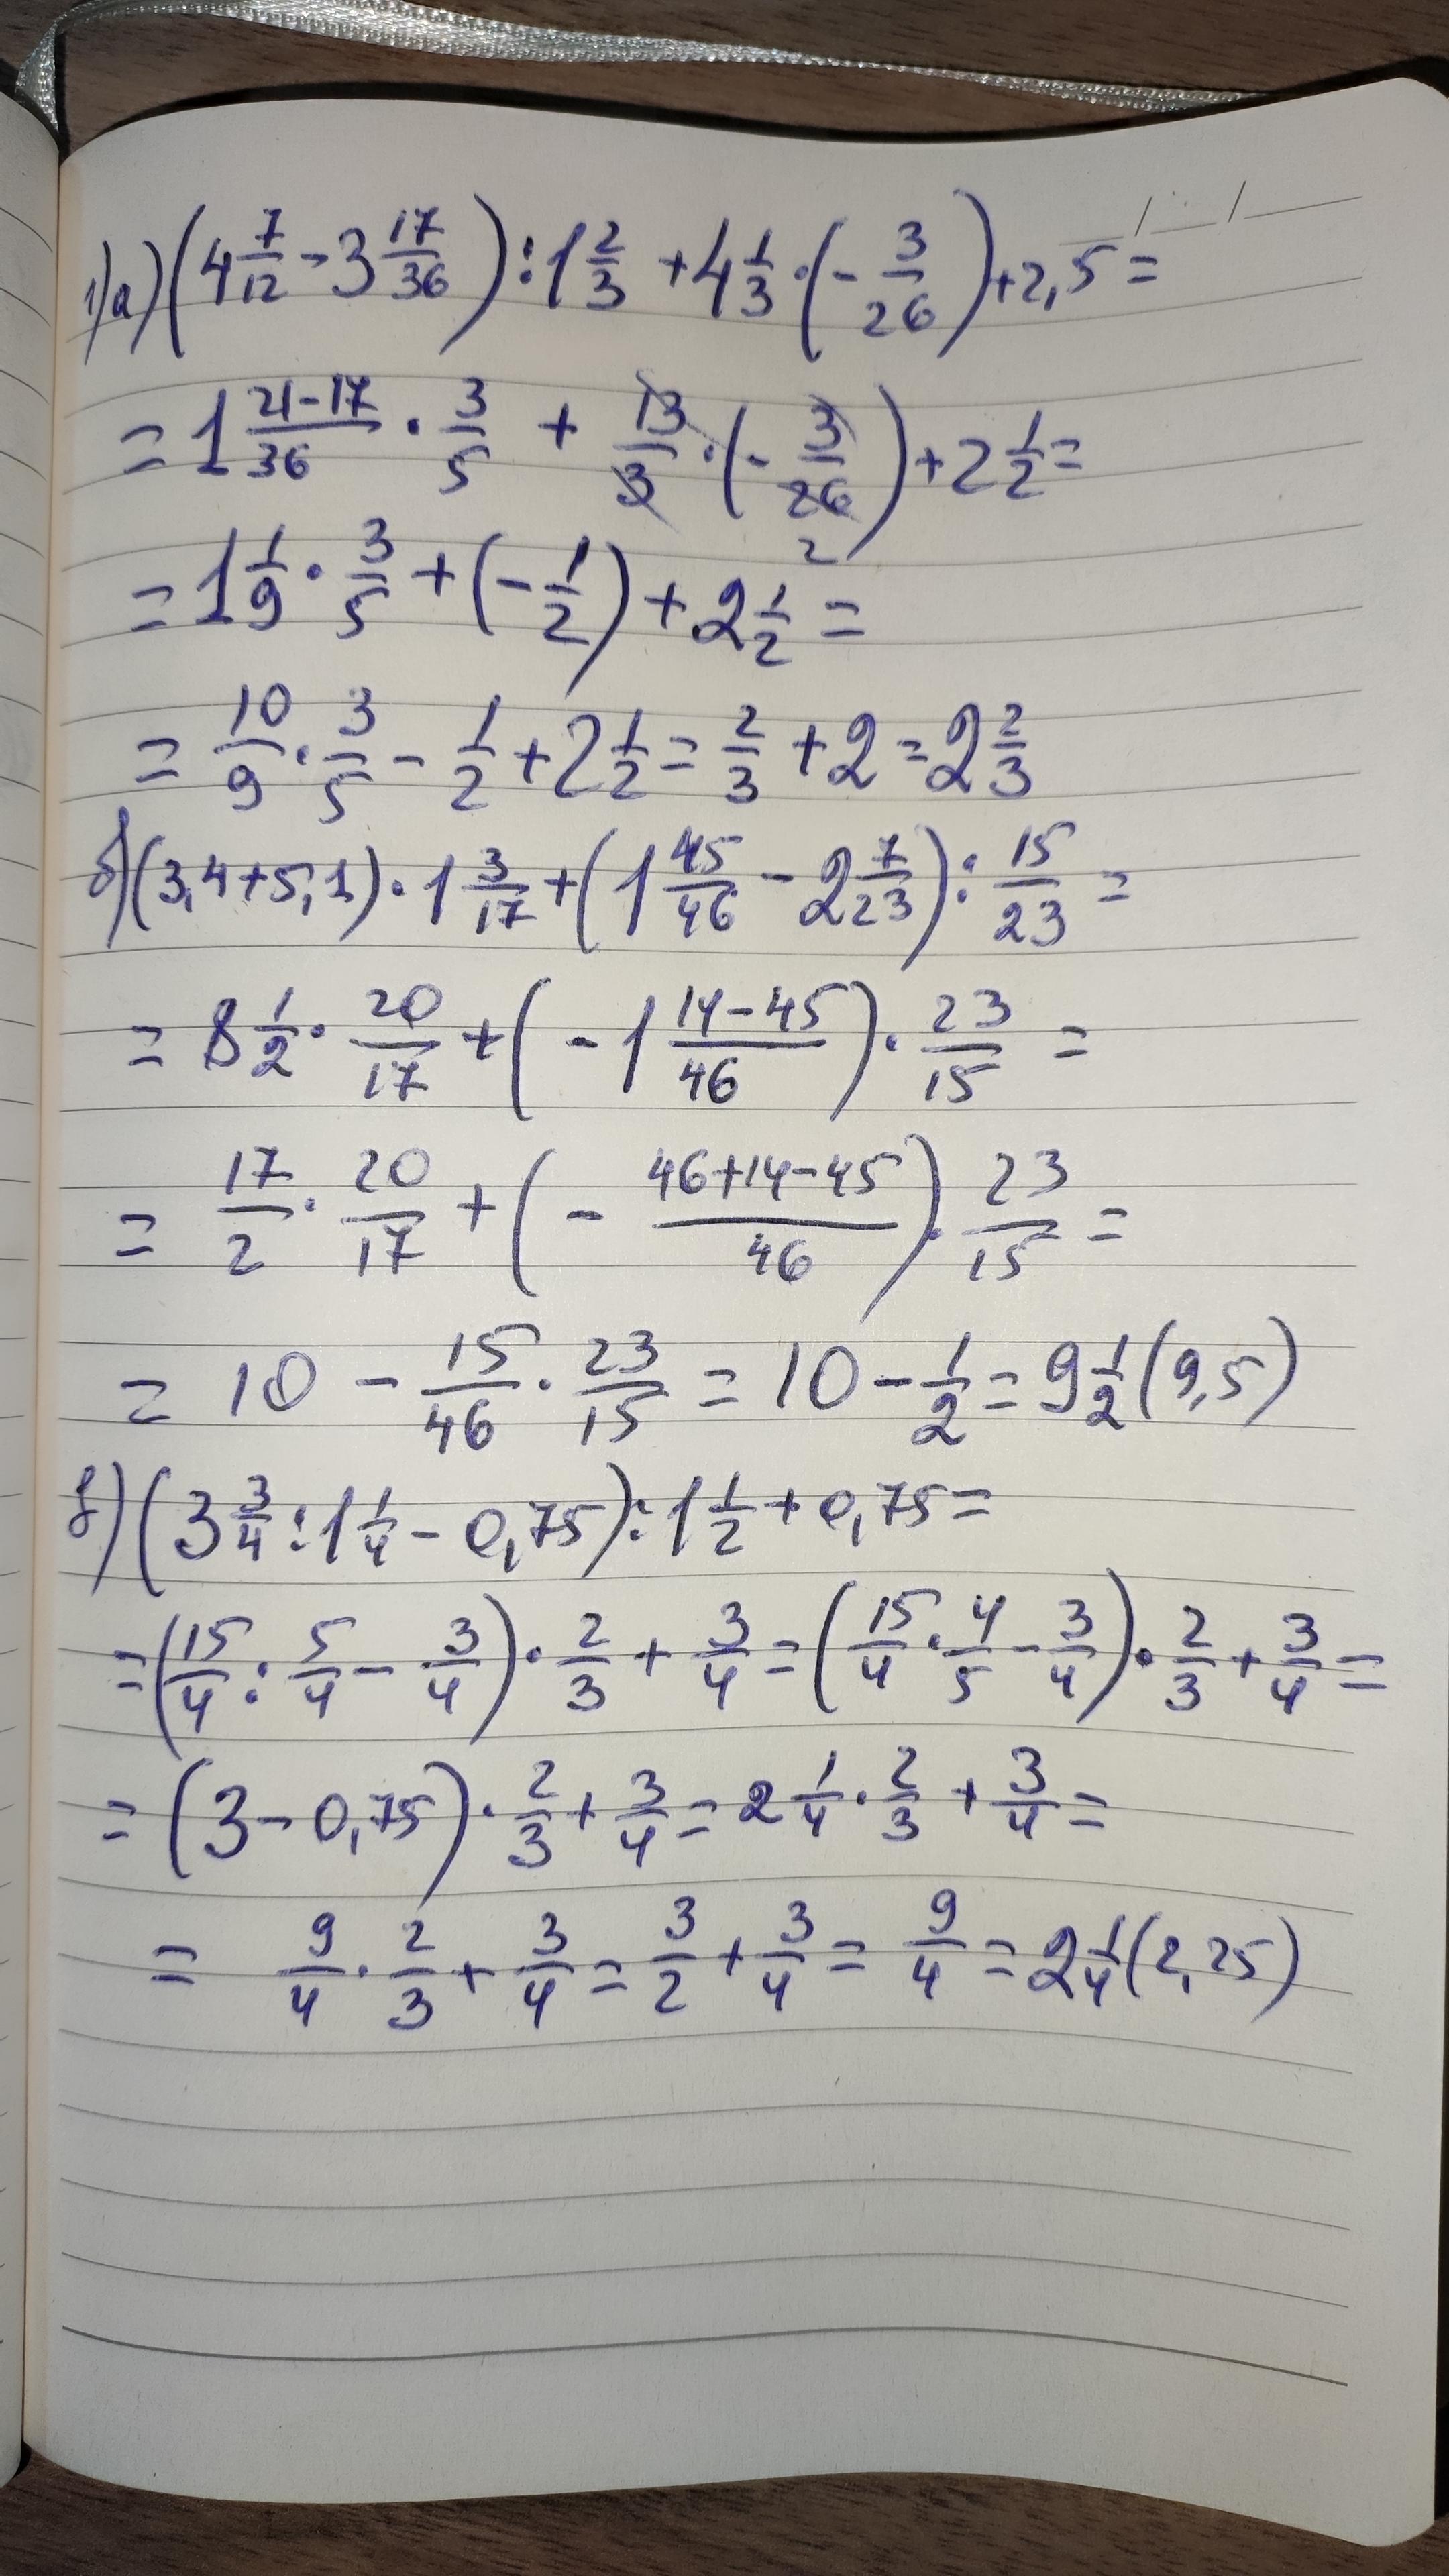 1)а) (4 7/12 - 3 17/36) : 1 2/3 + 4 1/3 · (- 3/26) + 2,5 =
= 1 (21-17)/36 · 3/5 + 13/3 · (- 3/26) + 2 1/2 =
2
= 1 1/9 · 3/5 + (- 1/2) + 2 1/2 =
= 10/9 · 3/5 - 1/2 + 2 1/2 = 2/3 + 2 = 2 2/3
б) (3,4+5,1) · 1 3/17 + (1 45/46 - 2 7/23) : 15/23 =
= 8 1/2 · 20/17 + (- 1 (14-45)/46) · 23/15 =
= 17/2 · 20/17 + (- (46+14-45)/46) · 23/15 =
= 10 - 15/46 · 23/15 = 10 - 1/2 = 9 1/2 (9,5)
в) (3 3/4 : 1 1/4 - 0,75) : 1 1/2 + 0,75 =
= (15/4 : 5/4 - 3/4) · 2/3 + 3/4 = (15/4 · 4/5 - 3/4) · 2/3 + 3/4 =
= (3 - 0,75) · 2/3 + 3/4 = 2 1/4 · 2/3 + 3/4 =
= 9/4 · 2/3 + 3/4 = 3/2 + 3/4 = 9/4 = 2 1/4 (2,25)